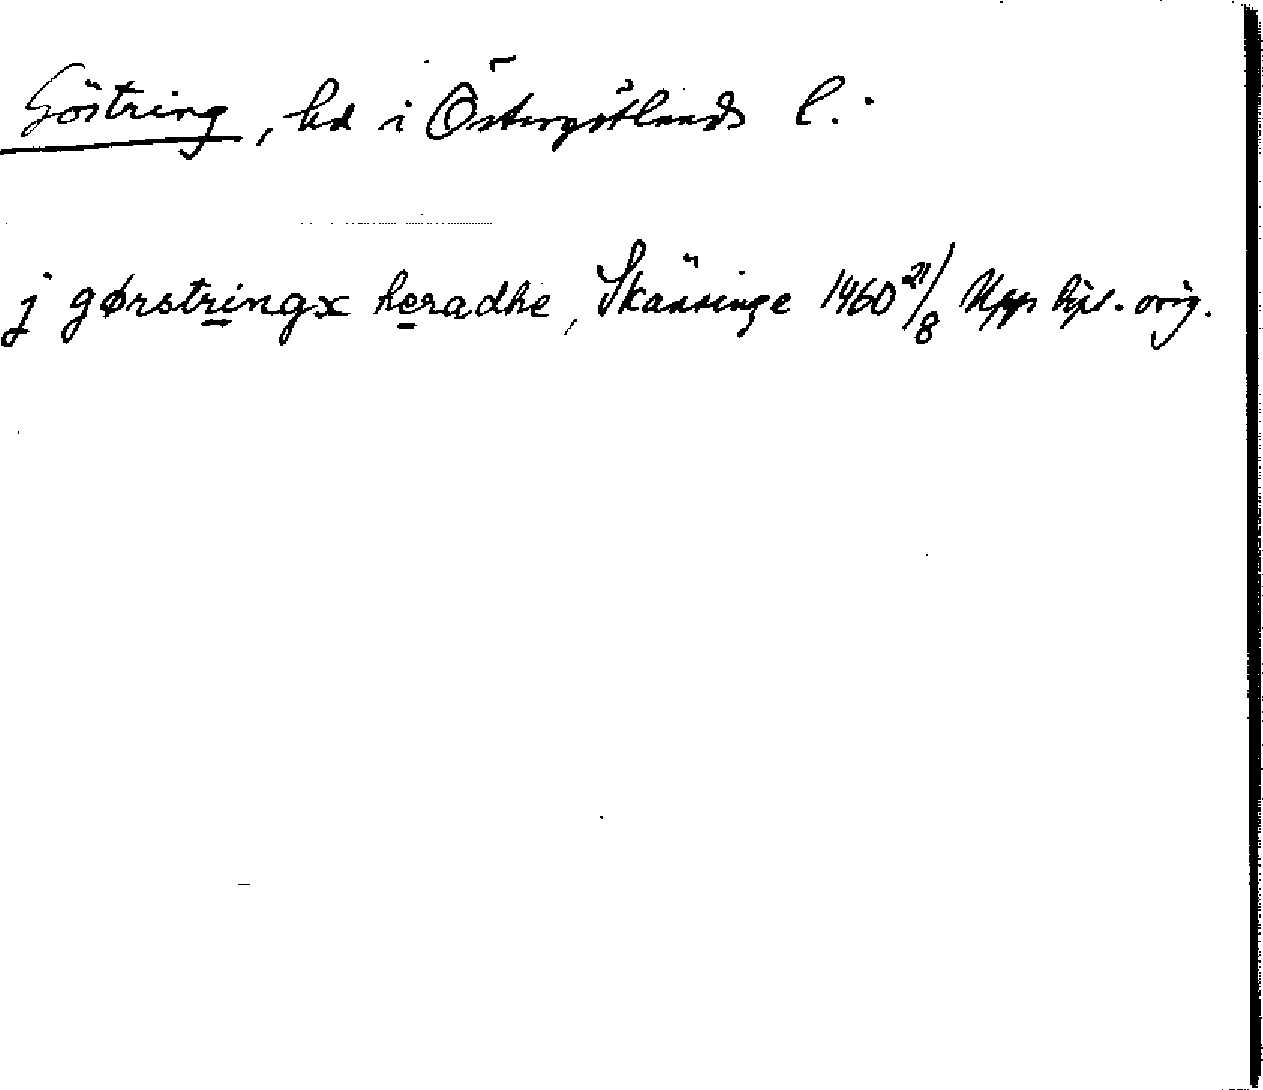 Göstring, hd i Östergötlands l.
j gørstringx heradhe, Skänninge 1460 21/8 Upps. orig.